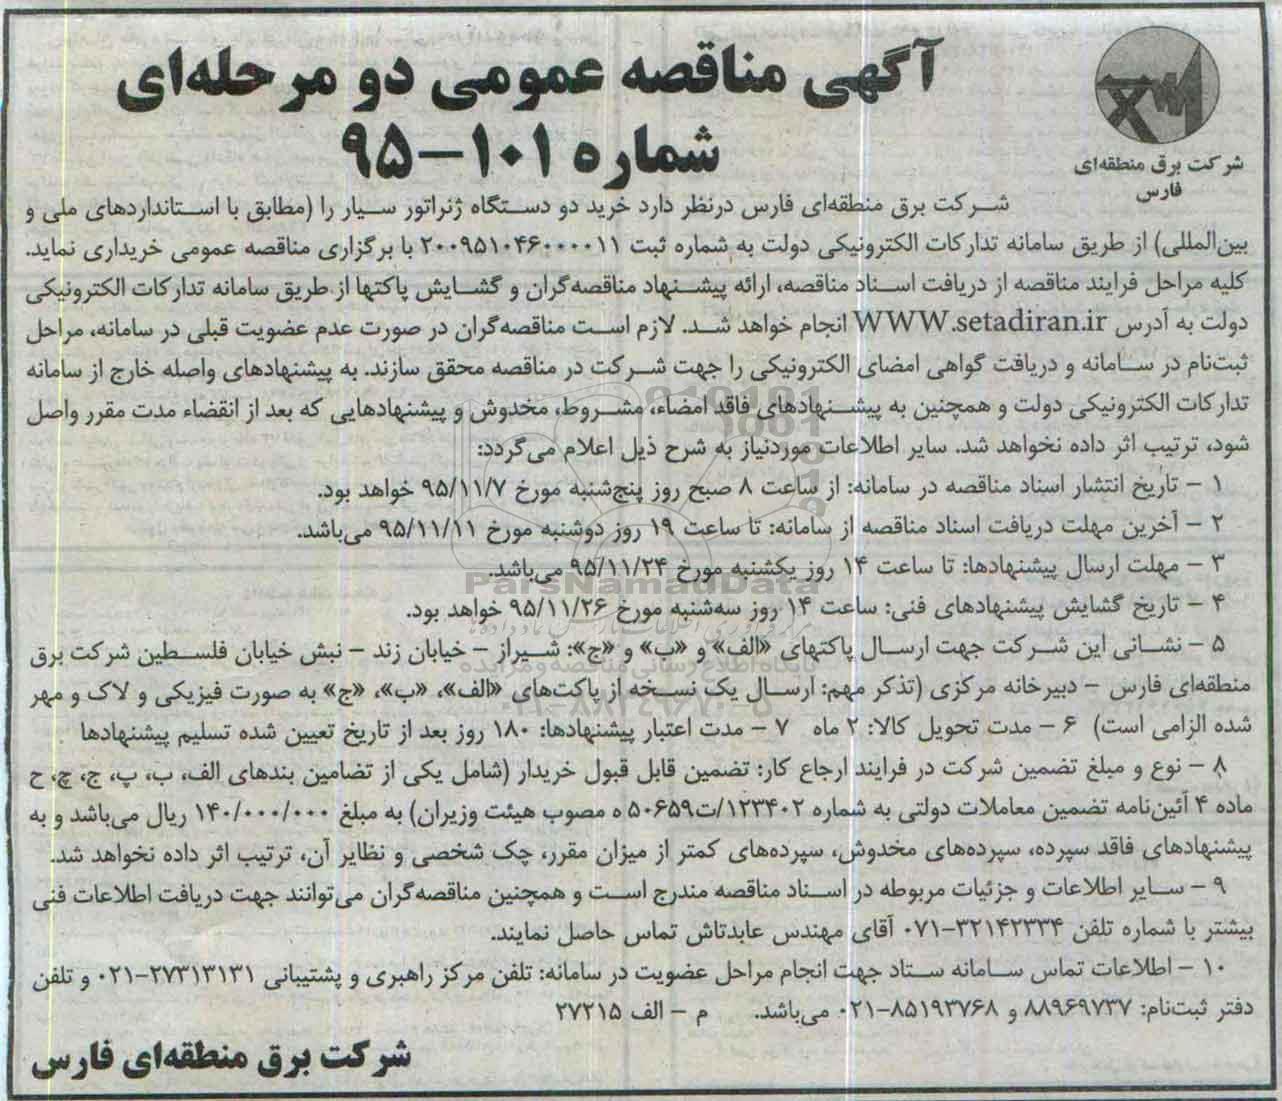 آگهی مناقصه عمومی دو مرحله‌ای
شماره ۱۰۱-۹۵
شرکت برق منطقه‌ای
فارس
شرکت برق منطقه‌ای فارس درنظر دارد خرید دو دستگاه ژنراتور سیار را (مطابق با استانداردهای ملی و
بین‌المللی) از طریق سامانه تدارکات الکترونیکی دولت به شماره ثبت ۲۰۰۹۵۱۰۴۶۰۰۰۰۱۱ با برگزاری مناقصه عمومی خریداری نماید.
کلیه مراحل فرایند مناقصه از دریافت اسناد مناقصه، ارائه پیشنهاد مناقصه‌گران و گشایش پاکتها از طریق سامانه تدارکات الکترونیکی
دولت به آدرس WWW.setadiran.ir انجام خواهد شد. لازم است مناقصه‌گران در صورت عدم عضویت قبلی در سامانه، مراحل
ثبت‌نام در سامانه و دریافت گواهی امضای الکترونیکی را جهت شرکت در مناقصه محقق سازند. به پیشنهادهای واصله خارج از سامانه
تدارکات الکترونیکی دولت و همچنین به پیشنهادهای فاقد امضاء، مشروط، مخدوش و پیشنهادهایی که بعد از انقضاء مدت مقرر واصل
شود، ترتیب اثر داده نخواهد شد. سایر اطلاعات موردنیاز به شرح ذیل اعلام می‌گردد:
۱ - تاریخ انتشار اسناد مناقصه در سامانه: از ساعت ۸ صبح روز پنج‌شنبه مورخ ۹۵/۱۱/۷ خواهد بود.
۲ - آخرین مهلت دریافت اسناد مناقصه از سامانه: تا ساعت ۱۹ روز دوشنبه مورخ ۹۵/۱۱/۱۱ می‌باشد.
۳ - مهلت ارسال پیشنهادها: تا ساعت ۱۴ روز یکشنبه مورخ ۹۵/۱۱/۲۴ می‌باشد.
ParsNamadData
۴ - تاریخ گشایش پیشنهادهای فنی: ساعت ۱۴ روز سه‌شنبه مورخ ۹۵/۱۱/۲۶ خواهد بود.
۵ - نشانی این شرکت جهت ارسال پاکتهای «الف» و «ب» و «ج»: شیراز - خیابان زند - نبش خیابان فلسطین شرکت برق
پایگاه اطلاع رسانی مناقصه و مزایده
منطقه‌ای فارس - دبیرخانه مرکزی (تذکر مهم: ارسال یک نسخه از پاکت‌های «الف»، «ب»، «ج» به صورت فیزیکی و لاک و مهر
شده الزامی است) ۶ - مدت تحویل کالا: ۲ ماه ۷ - مدت اعتبار پیشنهادها: ۱۸۰ روز بعد از تاریخ تعیین شده تسلیم پیشنهادها
۸ - نوع و مبلغ تضمین شرکت در فرایند ارجاع کار: تضمین قابل قبول خریدار (شامل یکی از تضامین بندهای الف، ب، پ، ج، چ، ح
ماده ۴ آئین‌نامه تضمین معاملات دولتی به شماره ۱۲۳۴۰۲/ت۵۰۶۵۹ ه مصوب هیئت وزیران) به مبلغ ۱۴۰/۰۰۰/۰۰۰ ریال می‌باشد و به
پیشنهادهای فاقد سپرده، سپرده‌های مخدوش، سپرده‌های کمتر از میزان مقرر، چک شخصی و نظایر آن، ترتیب اثر داده نخواهد شد.
۹ - سایر اطلاعات و جزئیات مربوطه در اسناد مناقصه مندرج است و همچنین مناقصه‌گران می‌توانند جهت دریافت اطلاعات فنی
بیشتر با شماره تلفن ۳۲۱۴۲۳۳۴-۰۷۱ آقای مهندس عابدتاش تماس حاصل نمایند.
۱۰ - اطلاعات تماس سامانه ستاد جهت انجام مراحل عضویت در سامانه: تلفن مرکز راهبری و پشتیبانی ۲۷۳۱۳۱۳۱-۰۲۱ و تلفن
دفتر ثبت‌نام: ۸۸۹۶۹۷۳۷ و ۸۵۱۹۳۷۶۸-۰۲۱ می‌باشد. م - الف ۲۷۲۱۵
شرکت برق منطقه‌ای فارس